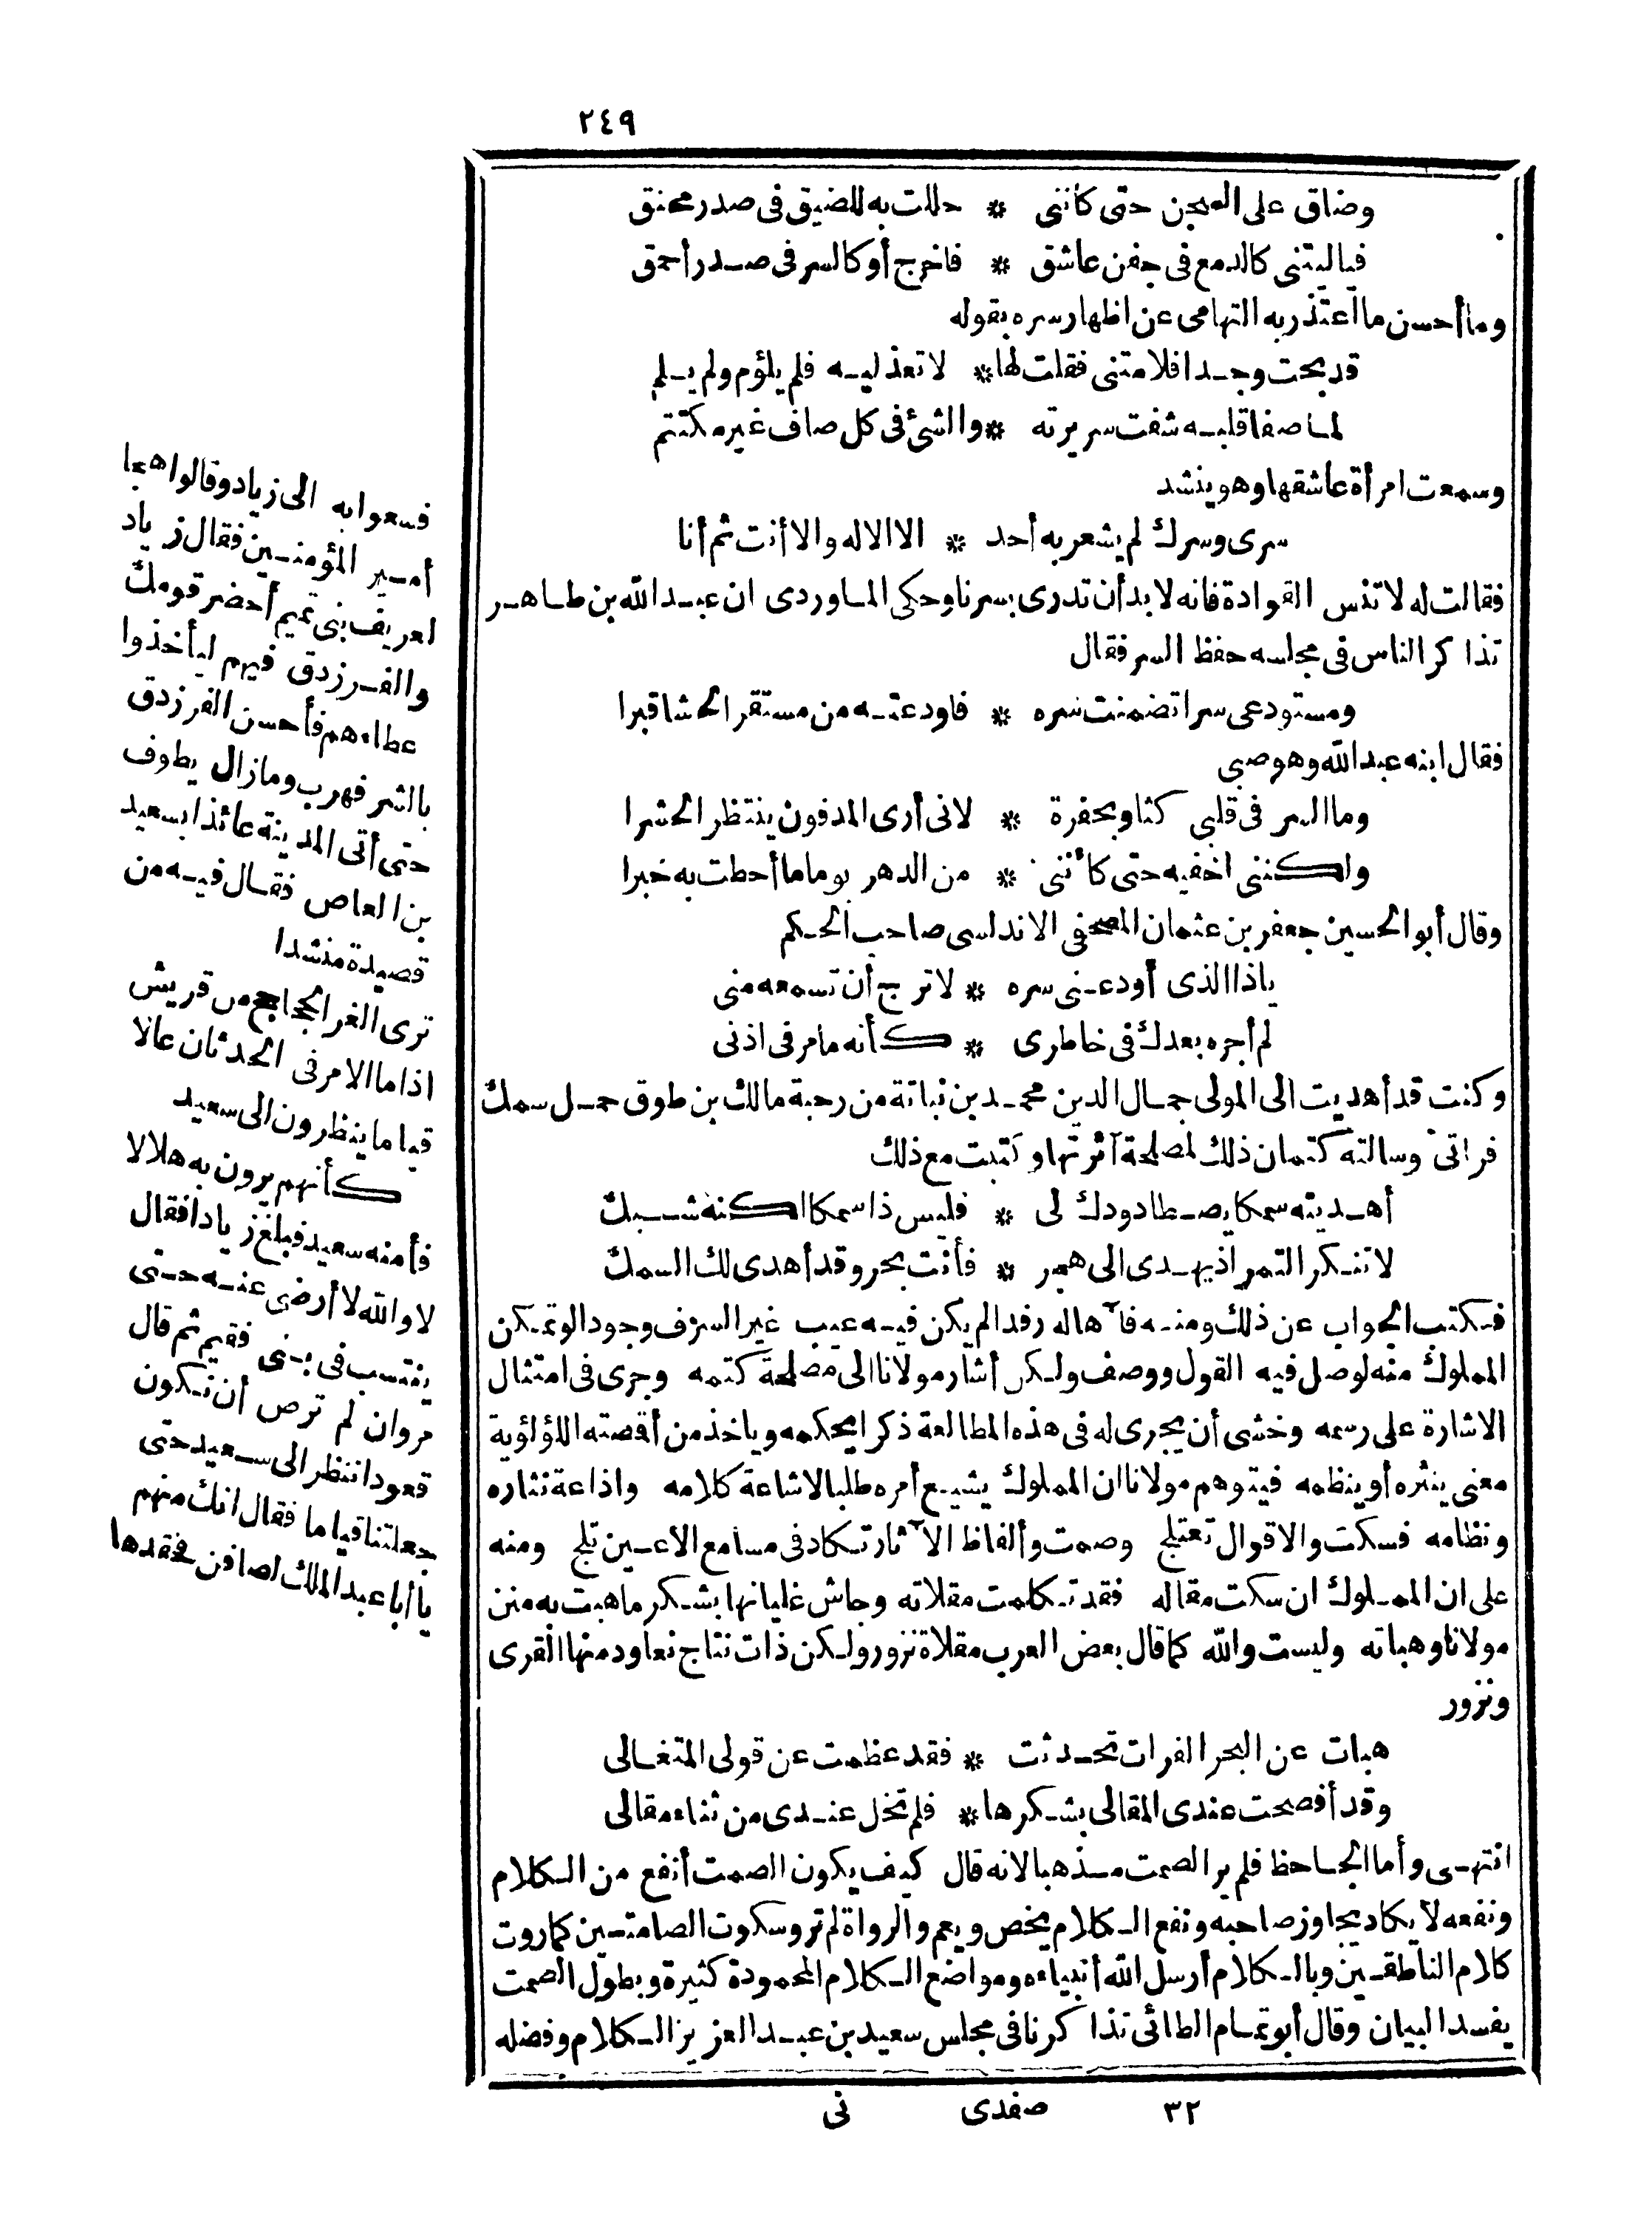 ٢٤٩
وضاق على السجن حتى كأننى * حللت به للضيق فى صدر محنق
فياليتنى كالدمع فى جفن عاشق * فاخرج أو كالسر فى صدر أحمق
وما أحسن ما اعتذر به التهامى عن اظهار سره بقوله
قد بحت وجدا فلامتنى فقلت لها * لا تعذليه فلم يلؤم ولم يلم
لما صفا قلبه شفت سريرته * والشئ فى كل صاف غير مكتتم
وسمعت امرأة عاشقها وهو ينشد
سرى وسرك لم يشعر به أحد * الا الاله والا أنت ثم أنا
فقالت له لا تنس القوادة فانه لا بد أن تدرى بسرنا وحكى الماوردى ان عبد الله بن طاهر
تذاكر الناس فى مجلسه حفظ السر فقال
ومستودعى سرا تضمنت سره * فاودعته من مستقر الحشا قبرا
فقال ابنه عبد الله وهو صبى
وما السر فى قلبى كثاو بحفرة * لانى أرى المدفون ينتظر الحشرا
ولكننى اخفيه حتى كأننى * من الدهر يوما ما أحطت به خبرا
وقال أبو الحسين جعفر بن عثمان المصحفى الاندلسى صاحب الحكم
ياذا الذى أودعنى سره * لا ترج أن تسمعه منى
لم أجره بعدك فى خاطرى * كأنه ما مر فى اذنى
وكنت قد أهديت الى المولى جمال الدين محمد بن نباتة من رحبة مالك بن طوق حمل سمك
فراتى وسالته كتمان ذلك لمصلحة آثرتها وكتبت مع ذلك
أهديته سمكا يصطاد ودك لى * فليس ذا سمكا لكنه شبك
لا تنكر التمر اذ يهدى الى هجر * فأنت بحر وقد أهدى لك السمك
فكتب الجواب عن ذلك ومنه فآها له رفد الم يكن فيه عيب غير السرف وجود الوتمكن
المملوك منه لوصل فيه القول ووصف ولكن أشار مولانا الى مصلحة كتمه وجرى فى امتثال
الاشارة على رسمه وخشى أن يجرى له فى هذه المطالعة ذكرا يحكمه وياخذ من أقصته اللؤلؤية
معنى ينثره أو ينظمه فيتوهم مولانا ان المملوك يشيع أمره طلبا لاشاعة كلامه واذاعة نثاره
ونظامه فسكت والاقوال تعتلج وصمت وألفاظ الآثار تكاد فى مسامع الاعين تلج ومنه
على ان المملوك ان سكت مقاله فقد تكلمت مقلاته وجاش غليانها بشكر ما هبت به منن
مولانا وهباته وليست والله كما قال بعض العرب مقلاة نزور ولكن ذات نتاج نعاود منها القرى
ونزور
هبات عن البحر الفرات تحدثت * فقد عظمت عن قولى المتغالى
وقد أفصحت عندى المقالى بشكرها * فلم تخل عندى من ثناء مقالى
انتهى وأما الجاحظ فلم ير الصمت مذهبا لانه قال كيف يكون الصمت أنفع من الكلام
ونفعه لا يكاد يجاوز صاحبه ونفع الكلام يخص ويعم والرواة لم ترو سكوت الصامتين كما روت
كلام الناطقين وبالكلام أرسل الله أنبياءه ومواضع الكلام المحمودة كثيرة وبطول الصمت
يفسد البيان وقال أبو تمام الطائى تذاكرنا فى مجلس سعيد بن عبد العزيز الكلام وفضله
فسعوا به الى زياد وقالوا هجا
أمير المؤمنين فقال زياد
لعريف بنى تميم أحضر قومك
والفرزدق فيهم ليأخذوا
عطاءهم فأحسن الفرزدق
بالشر فهرب وما زال يطوف
حتى أتى المدينة عائذا بسعيد
بن العاص فقال فيه من
قصيدة منشدا
ترى الغر الججاجح من قريش
اذا ما الامر فى الحدثان عالا
قياما ينظرون الى سعيد
كأنهم يرون به هلالا
فأمنه سعيد فبلغ زيادا فقال
لا والله لا أرضى عنه حتى
ينتسب فى بنى فقيم ثم قال
مروان لم ترض أن نكون
قعودا ننظر الى سعيد حتى
جعلتنا قياما فقال انك منهم
يا أبا عبد الملك لصافن فحقدها
٣٢ صفدى نى